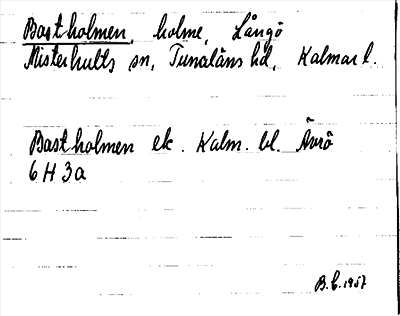 Bastholmen, holme, Långö
Misterhults sn, Tunaläns hd, Kalmar l.
Bastholmen ek. Kalm. bl. Ävrö
6 H 3a
B.E. 1957